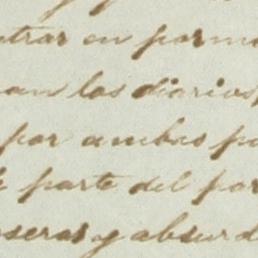 y
trar en porme
an los diarios,
por ambas pa
parte del por
seras y absurd